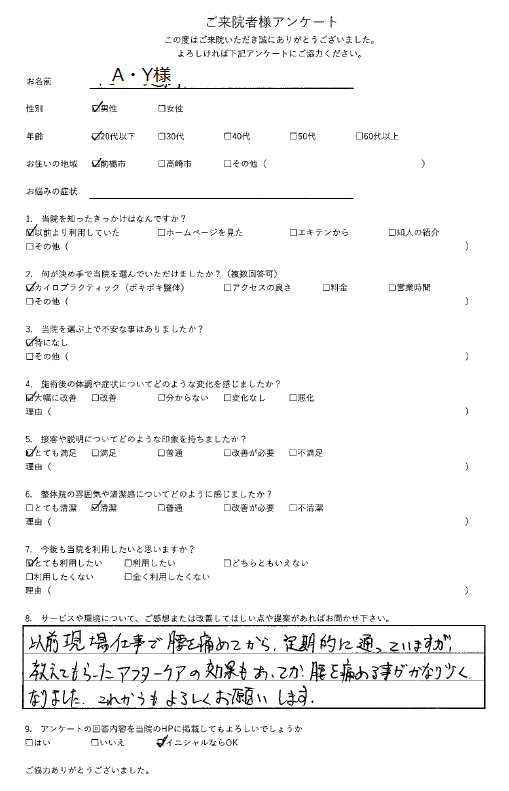 ご来院者様アンケート
この度はご来院いただき誠にありがとうございました。
よろしければ下記アンケートにご協力ください。
お名前 A・Y様
性別 ☑男性 □女性
年齢 ☑20代以下 □30代 □40代 □50代 □60代以上
お住いの地域 ☑前橋市 □高崎市 □その他（ ）
お悩みの症状
1. 当院を知ったきっかけはなんですか？
☑以前より利用していた □ホームページを見た □エキテンから □知人の紹介
□その他（ ）
2. 何が決め手で当院を選んでいただけましたか？（複数回答可）
☑カイロプラクティック（ボキボキ整体） □アクセスの良さ □料金 □営業時間
□その他（ ）
3. 当院を選ぶ上で不安な事はありましたか？
☑特になし
□その他（ ）
4. 施術後の体調や症状についてどのような変化を感じましたか？
☑大幅に改善 □改善 □分からない □変化なし □悪化
理由（ ）
5. 接客や説明についてどのような印象を持ちましたか？
☑とても満足 □満足 □普通 □改善が必要 □不満足
理由（ ）
6. 整体院の雰囲気や清潔感についてどのように感じましたか？
□とても清潔 ☑清潔 □普通 □改善が必要 □不潔
理由（ ）
7. 今後も当院を利用したいと思いますか？
☑とても利用したい □利用したい □どちらともいえない
□利用したくない □全く利用したくない
理由（ ）
8. サービスや環境について、ご感想または改善してほしい点や提案があればお聞かせ下さい。
以前現場仕事で腰を痛めてから、定期的に通っていますが、
教えてもらったアフターケアの効果もあってか、腰を痛める事がかなり少く
なりました。これからもよろしくお願いします。
9. アンケートの回答内容を当院のHPに掲載してもよろしいでしょうか
□はい □いいえ ☑イニシャルならOK
ご協力ありがとうございました。